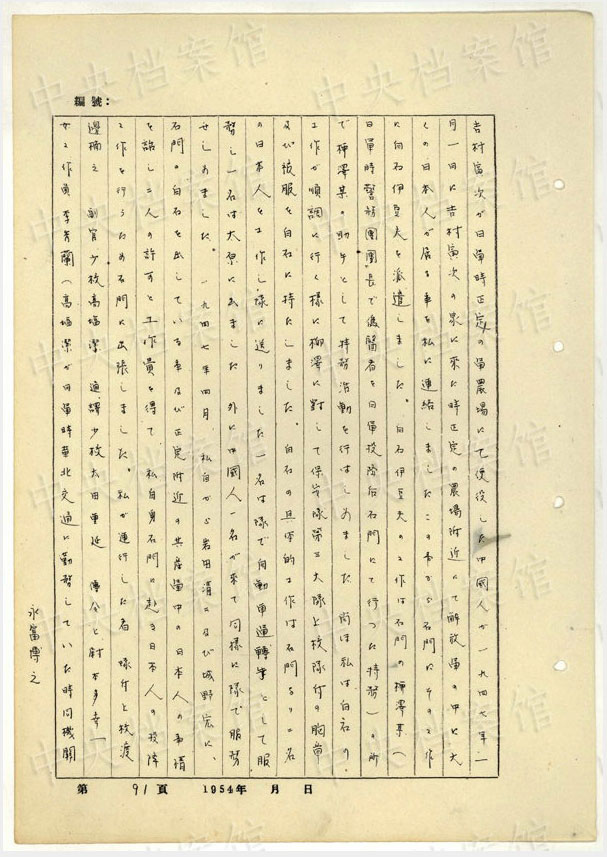 編號：
吉村富次が日軍時正定の軍農場にて使役した中國人が一九四七年一
月一日に吉村富次の眾に来た時正定の農場附近にて解放軍の中に大
くの日本人が居る事を私に連絡しましたこの事から石門にその工作
に白石伊豆夫を派遣しました。白石伊豆夫の工作は石門の柳澤某（
日軍時警務團團長で偽醫者を日軍投降后石門にて行つた特務）の所
で柳澤某の助手として特務活動を行はしめました 尚ほ私は白石の
工作が順調に行く様に柳澤に對して保安隊第三大隊上校隊付の胸章
及び被服を白石に持たしました。白石の具体的工作は石門より二名
の日本人を工作し隊に送りました一名は隊で自動車運轉手として服
務し一名は太原に
ました 外に中國人一名が来て同様に隊で服務
せしめました。一九四七年四月、私自から岩田清一及び城野宏に、
石門の白石を出している事及び正定附近の共産軍中の日本人の事情
を話し二人の許可と工作員を得て 私自身石門に赴き日本人の投降
工作を行うため石門に出張しました。私が連行した者 隊付上校渡
邊楠之 副官少校高塩潔 通譯少校太田軍延 傳令上尉
多幸一
女工作員李芳蘭（高塩潔が日軍時華北交通に勤務していた時同機關
永富博之
第 91頁 1954年 月 日
中央档案馆